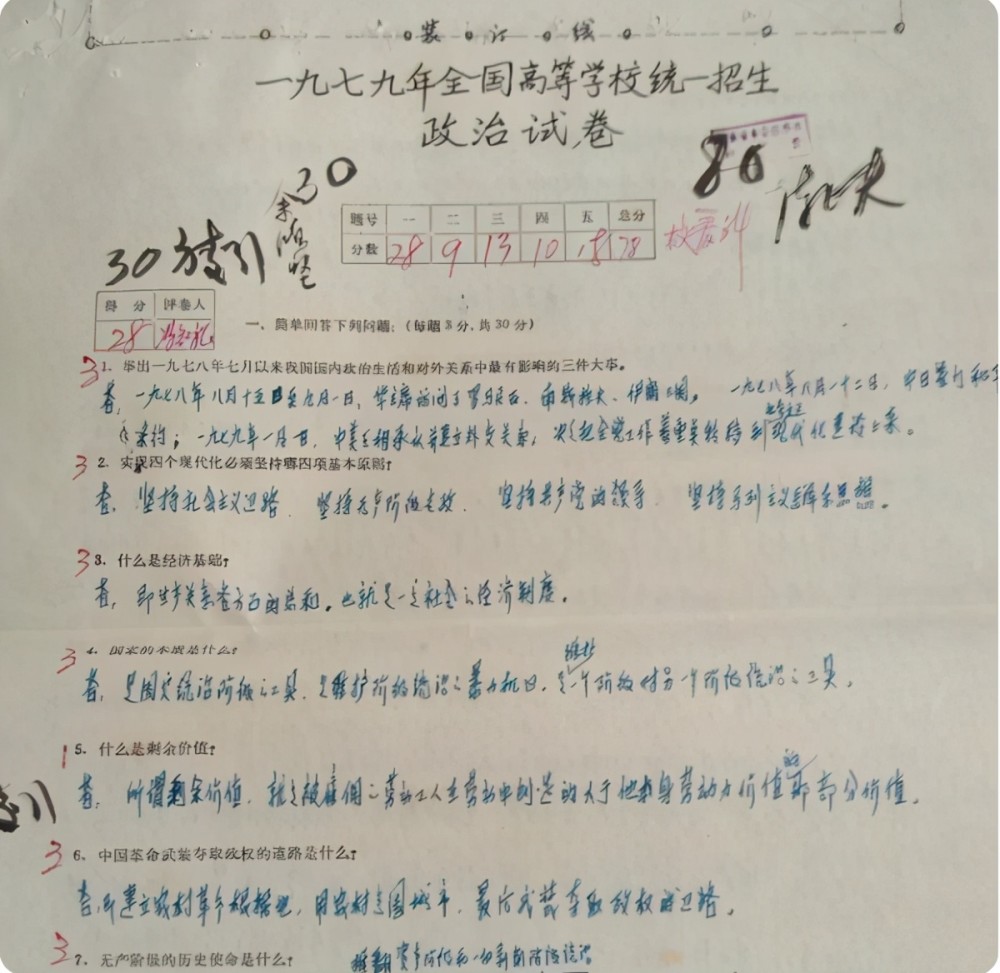 装 订 线
一九七九年全国高等学校统一招生
政治试卷
30
80
30
题号 一 二 三 四 五 总分
分数 28 9 13 10 18 78
得分 评卷人
28
一、简单回答下列问题：（每题3分，共30分）
3 1. 举出一九七八年七月以来我国国内政治生活和对外关系中最有影响的三件大事。
答，一九七八年八月十五日至九月一日，华主席访问了罗马尼亚、南斯拉夫、伊朗三国。一九七八年八月十二日，中日签订和平
条约；一九七九年一月一日，中美互相承认并建立外交关系，决定把全党工作着重点转移到现代化建设上来。
3 2. 实现四个现代化必须坚持哪四项基本原则？
答，坚持社会主义道路、坚持无产阶级专政、坚持共产党的领导、坚持马列主义毛泽东思想。
3 3. 什么是经济基础？
答，即生产关系各方面的总和。也就是一定社会之经济制度。
3 4. 国家的本质是什么？
答，是阶级统治之工具，是维护阶级统治之暴力机关，是一个阶级对另一个阶级统治之工具。
1 5. 什么是剩余价值？
答，所谓剩余价值，就是被雇佣之劳动工人在劳动中创造的大于他本身劳动力价值的那部分价值。
3 6. 中国革命武装夺取政权的道路是什么？
答，即建立农村革命根据地，用农村包围城市，最后武装夺取政权的道路。
3 7. 无产阶级的历史使命是什么？
推翻资产阶级和一切剥削阶级统治